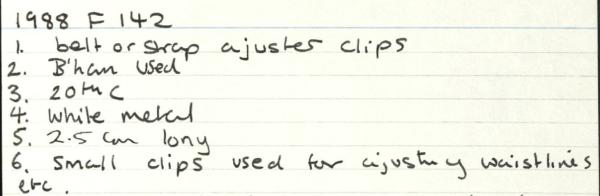 1988 F 142
1. belt or strap ajuster clips
2. B'ham used
3. 20th C
4. white metal
5. 2.5 cm long
6. small clips used for ajusting waistlines
etc.